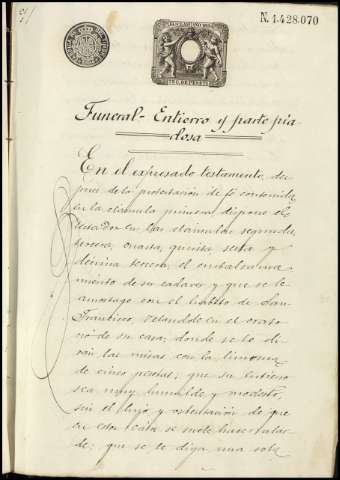 N. 1.428.070
Funeral - Entierro y parte pia-
dosa
En el expresado testamento, des-
pues de la protestación de fé contenida
en la cláusula primera dispone el
testador en las cláusulas segunda,
tercera, cuarta, quinta, sexta y
décima tercera, el embalsama-
miento de su cadaver y que se le
amortaje con el hábito de San
Francisco, velandole en el orato-
rio de su casa; donde se le di-
rán las misas con la limosna
de cinco pesetas; que su entierro
sea muy humilde y modesto,
sin el lujo y ostentación de que
en estos casos se suele hacer alar-
de; que se le diga una sola